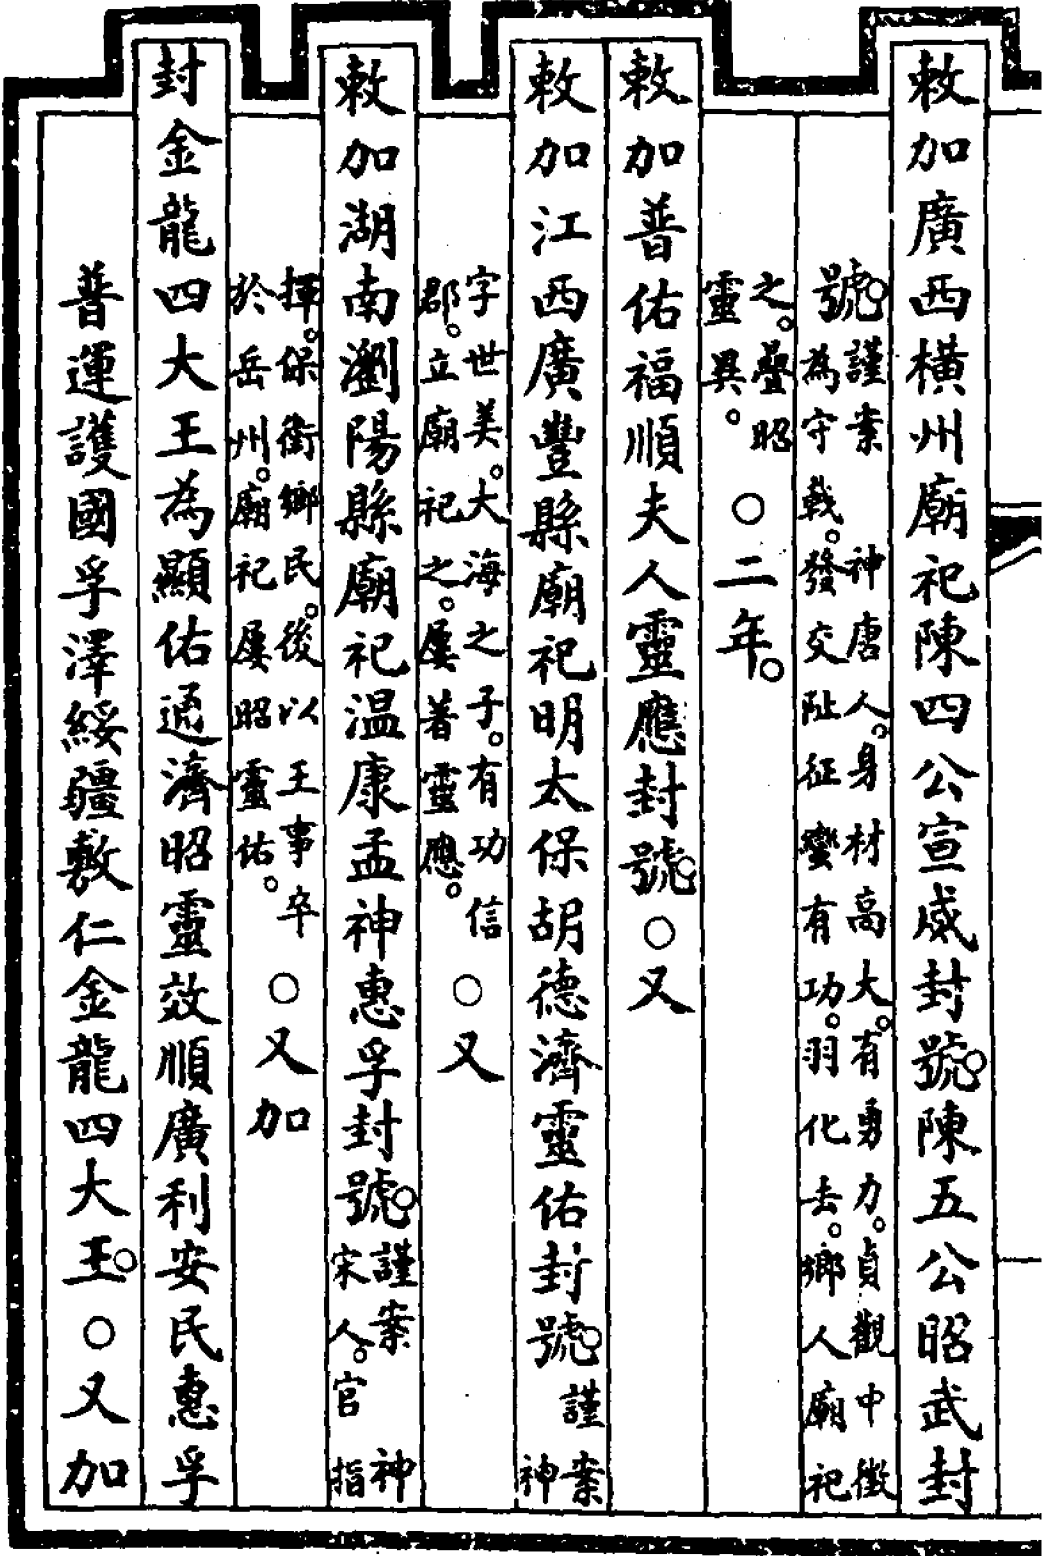 敕加廣西橫州廟祀陳四公宣威封號。陳五公昭武封
號。謹案神唐人。身材高大。有勇力。貞觀中徵
為守戟。發交阯征蠻有功。羽化去。鄉人廟祀
之。疊昭
靈異。○二年。
敕加普佑福順夫人靈應封號。○又
敕加江西廣豐縣廟祀明太保胡德濟靈佑封號。謹案
神
字世美。大海之子。有功信
郡。立廟祀之。屢著靈應。○又
敕加湖南瀏陽縣廟祀温康孟神惠孚封號。謹案神
宋人。官指
揮。保衛鄉民。後以王事卒
於岳州。廟祀屢昭靈佑。○又加
封金龍四大王為顯佑通濟昭靈效順廣利安民惠孚
普運護國孚澤綏疆敷仁金龍四大王。○又加